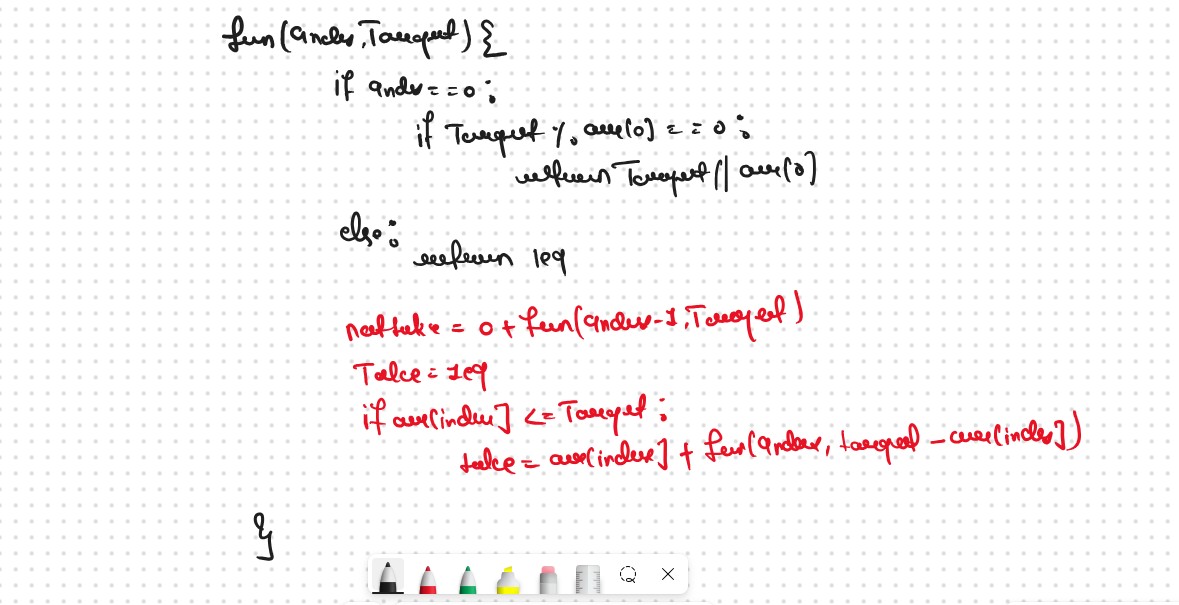 fun(index, Target) {
if index == 0:
if Target % arr[0] == 0:
return Target // arr[0]
else:
return 1e9
nottake = 0 + fun(index-1, Target)
Take = 1e9
if arr[index] <= Target:
take = arr[index] + fun(index, target - arr[index])
}